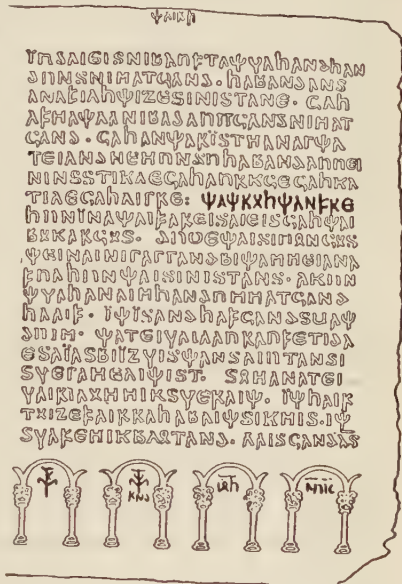 𐌸𐌰𐌹𐍂𐌷
𐌹̈𐌿𐌳𐌰𐌹𐌴𐌹𐍃 𐌽𐌹𐌱𐌰 𐌿𐍆𐍄𐌰 𐌸𐍅𐌰𐌷𐌰𐌽𐌳 𐌷𐌰𐌽
𐌳𐌿𐌽𐍃 𐌽𐌹 𐌼𐌰𐍄𐌾𐌰𐌽𐌳. 𐌷𐌰𐌱𐌰𐌽𐌳𐌰𐌽𐍃
𐌰𐌽𐌰𐍆𐌹𐌻𐌷 𐌸𐌹𐌶𐌴 𐍃𐌹𐌽𐌹𐍃𐍄𐌰𐌽𐌴. 𐌾𐌰𐌷
𐌰𐍆 𐌼𐌰𐌸𐌻𐌰 𐌽𐌹𐌱𐌰 𐌳𐌰𐌿𐍀𐌾𐌰𐌽𐌳 𐌽𐌹 𐌼𐌰𐍄
𐌾𐌰𐌽𐌳. 𐌾𐌰𐌷 𐌰𐌽𐌸𐌰𐍂 𐌹̈𐍃𐍄 𐌼𐌰𐌽𐌰𐌲 𐌸𐌰
𐍄𐌴𐌹 𐌰𐌽𐌳𐌽𐌴𐌼𐌿𐌽 𐌳𐌿 𐌷𐌰𐌻𐌳𐌰𐌽 𐌳𐌰𐌿𐍀𐌴𐌹
𐌽𐌹𐌽𐍃 𐍃𐍄𐌹𐌺𐌻𐌴 𐌾𐌰𐌷 𐌰𐌿𐍂𐌺𐌾𐌴 𐌾𐌰𐌷 𐌺𐌰
𐍄𐌹𐌻𐌴 𐌾𐌰𐌷 𐌻𐌹𐌲𐍂𐌴: 𐌸𐌰𐌸𐍂𐍉𐌷 𐌸𐌰𐌽 𐍆𐍂𐌴
𐌷𐌿𐌽 𐌹̈𐌽𐌰 𐌸𐌰𐌹 𐍆𐌰𐍂𐌴𐌹𐍃𐌰𐌹𐌴𐌹𐍃 𐌾𐌰𐌷 𐌸𐌰𐌹
𐌱𐍉𐌺𐌰𐍂𐌾𐍉𐍃. 𐌳𐌿𐍈𐌴 𐌸𐌰𐌹 𐍃𐌹𐍀𐍉𐌽𐌾𐍉𐍃
𐌸𐌴𐌹𐌽𐌰𐌹 𐌽𐌹 𐌲𐌰𐌲𐌲𐌰𐌽𐌳 𐌱𐌹 𐌸𐌰𐌼𐌼𐌴𐌹 𐌰𐌽𐌰
𐍆𐌿𐌻𐌷𐌿𐌽 𐌸𐌰𐌹 𐍃𐌹𐌽𐌹𐍃𐍄𐌰𐌽𐍃. 𐌰𐌺 𐌿𐌽
𐌸𐍅𐌰𐌷𐌰𐌽𐌰𐌹𐌼 𐌷𐌰𐌽𐌳𐌿𐌼 𐌼𐌰𐍄𐌾𐌰𐌽𐌳
𐌷𐌻𐌰𐌹𐍆. 𐌹̈𐌸 𐌹̈𐍃 𐌰𐌽𐌳𐌷𐌰𐍆𐌾𐌰𐌽𐌳𐍃 𐌵𐌰𐌸
𐌳𐌿 𐌹𐌼. 𐌸𐌰𐍄𐌴𐌹 𐍅𐌰𐌹𐌻𐌰 𐍀𐍂𐌰𐌿𐍆𐌴𐍄𐌹𐌳𐌰
𐌴𐍃𐌰𐌹̈𐌰𐍃 𐌱𐌹 𐌹̈𐌶𐍅𐌹𐍃 𐌸𐌰𐌽𐍃 𐌻𐌹𐌿𐍄𐌰𐌽𐍃
𐍃𐍅𐌴 𐌲𐌰𐌼𐌴𐌻𐌹𐌸 𐌹𐍃𐍄. 𐍃𐍉 𐌼𐌰𐌽𐌰𐌲𐌴𐌹
𐍅𐌰𐌹𐍂𐌹𐌻𐍉𐌼 𐌼𐌹𐌺 𐍃𐍅𐌴𐍂𐌰𐌹𐌸. 𐌹̈𐌸 𐌷𐌰𐌹𐍂
𐍄𐍉 𐌹𐌶𐌴 𐍆𐌰𐌹𐍂𐍂𐌰 𐌷𐌰𐌱𐌰𐌹𐌸 𐍃𐌹𐌺 𐌼𐌹𐍃. 𐌹̈𐌸
𐍃𐍅𐌰𐍂𐌴 𐌼𐌹𐌺 𐌱𐌻𐍉𐍄𐌰𐌽𐌳. 𐌻𐌰𐌹𐍃𐌾𐌰𐌽𐌳𐌰𐌽𐍃